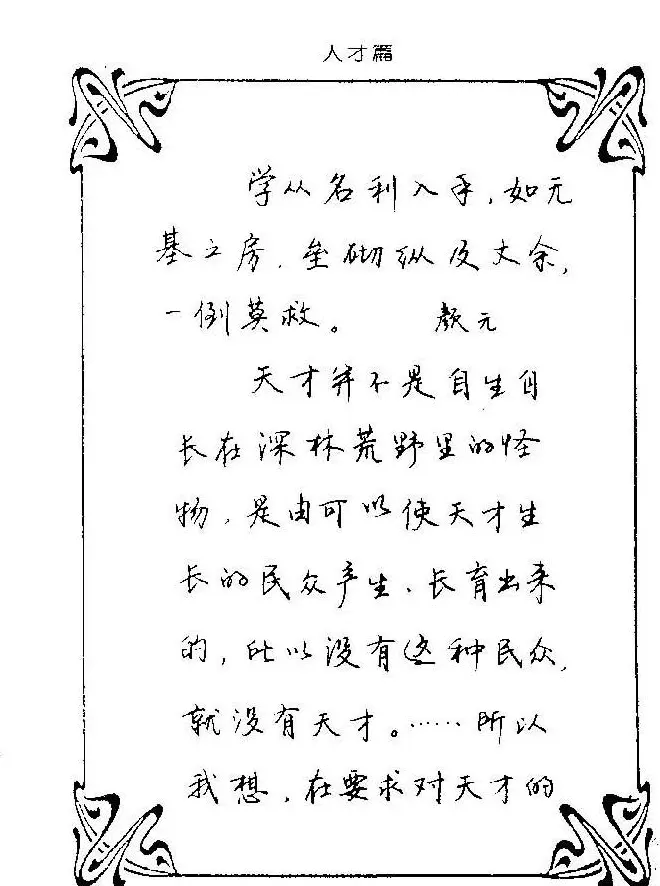 人才篇
学从名利入手，如无
基之房，垒砌纵及丈余，
一倒莫救。 颜元
天才并不是自生自
长在深林荒野里的怪
物，是由可以使天才生
长的民众产生、长育出来
的，所以没有这种民众，
就没有天才。……所以
我想，在要求对天才的